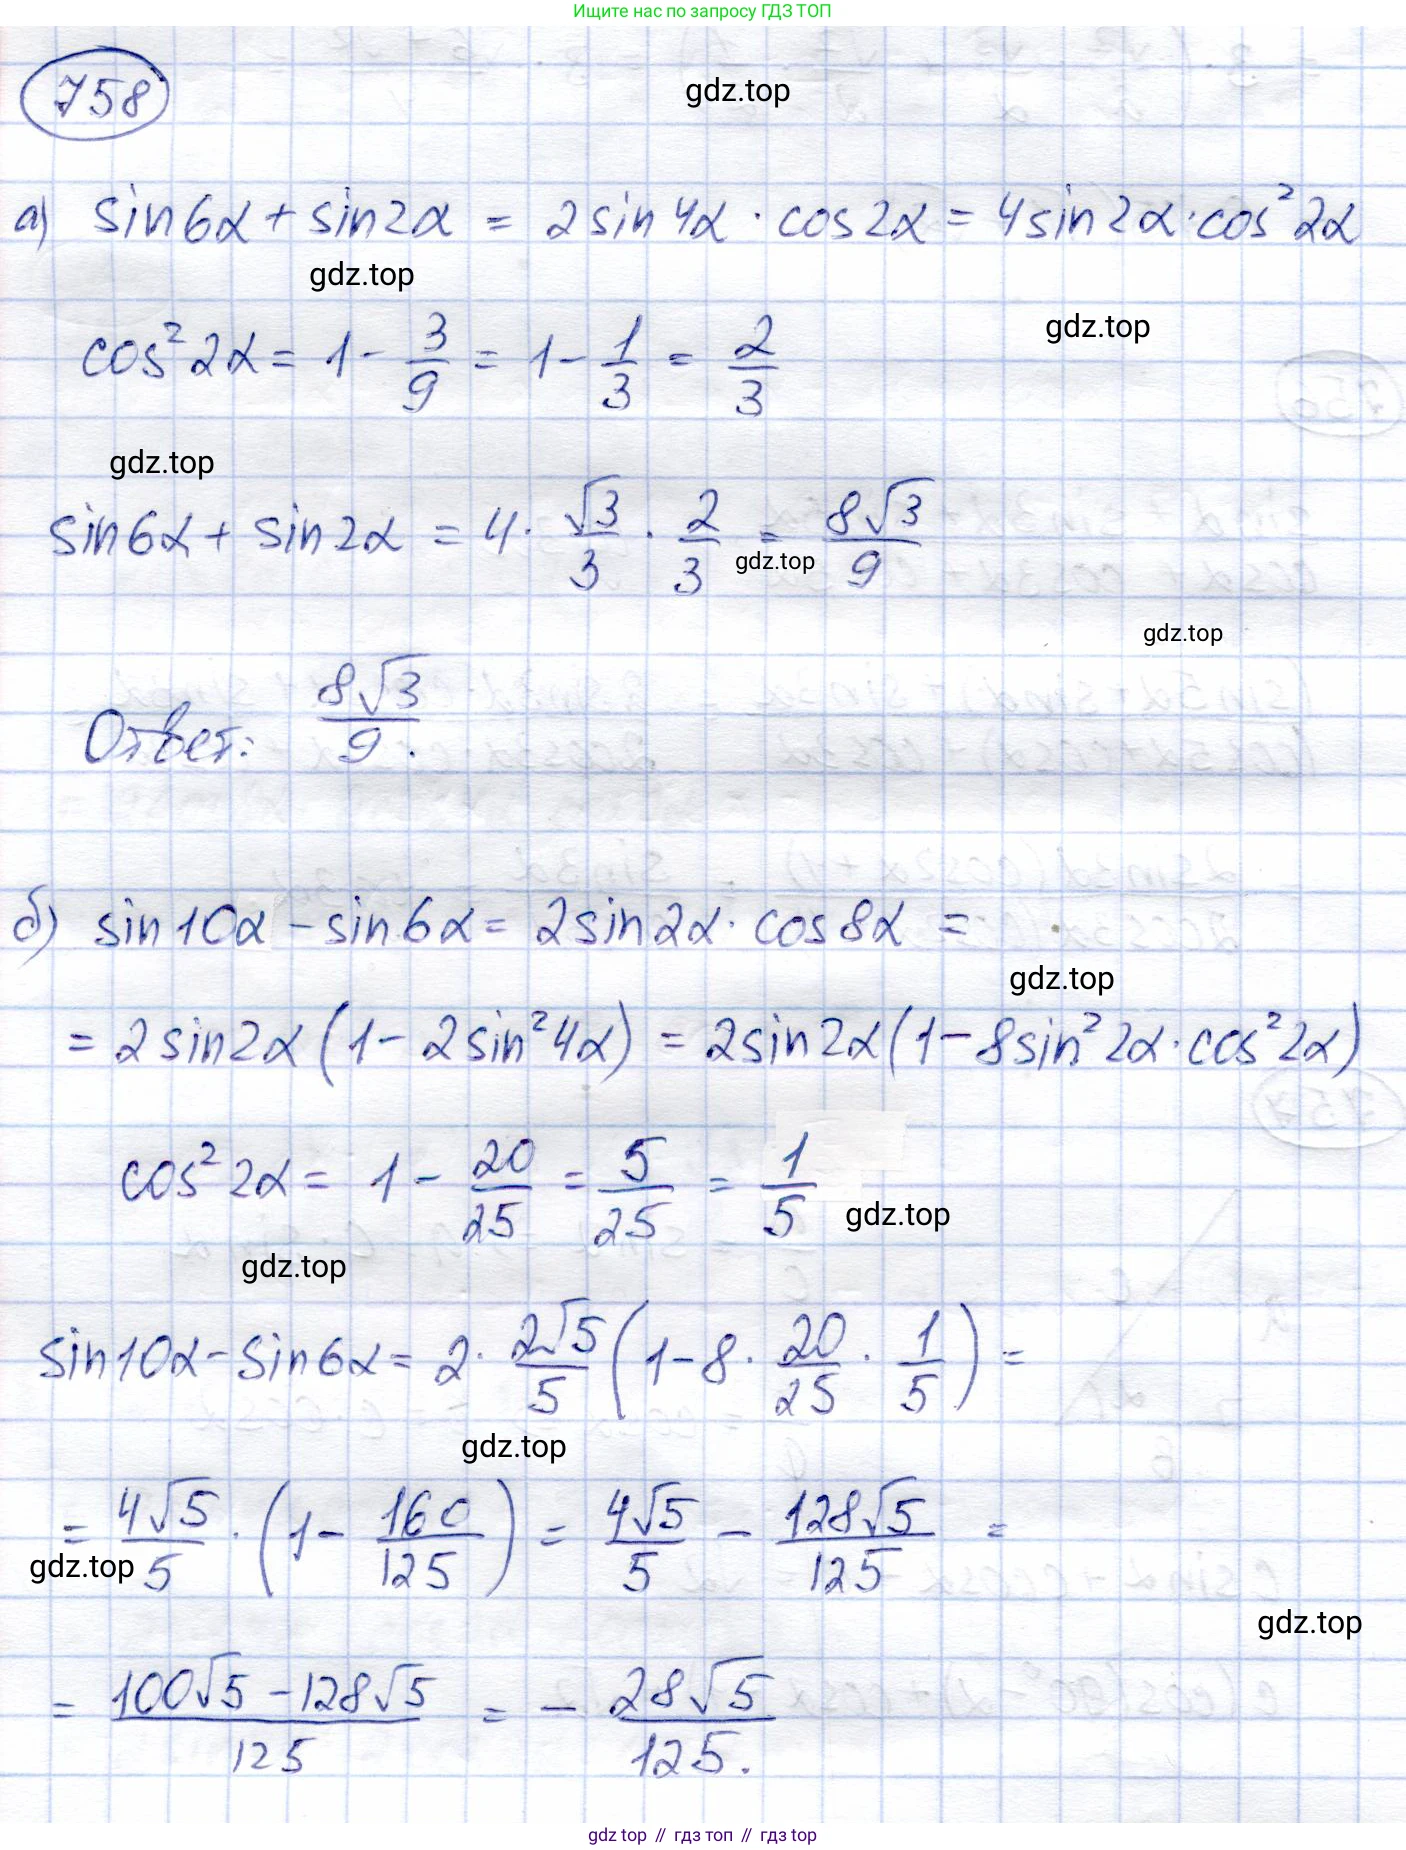 Ищите нас по запросу ГДЗ ТОП
758
gdz.top
а) sin6α + sin2α = 2sin4α · cos2α = 4sin2α · cos² 2α
gdz.top
gdz.top
cos² 2α = 1 - 3/9 = 1 - 1/3 = 2/3
gdz.top
sin6α + sin2α = 4 · √3/3 · 2/3 = 8√3/9
gdz.top
gdz.top
Ответ: 8√3/9.
б) sin10α - sin6α = 2sin2α · cos8α =
gdz.top
= 2sin2α (1 - 2sin² 4α) = 2sin2α (1 - 8sin² 2α · cos² 2α)
cos² 2α = 1 - 20/25 = 5/25 = 1/5
gdz.top
gdz.top
sin10α - sin6α = 2 · 2√5/5 (1 - 8 · 20/25 · 1/5) =
gdz.top
= 4√5/5 · (1 - 160/125) = 4√5/5 - 128√5/125 =
gdz.top
gdz.top
= (100√5 - 128√5)/125 = - 28√5/125.
gdz top // гдз топ // гдз top